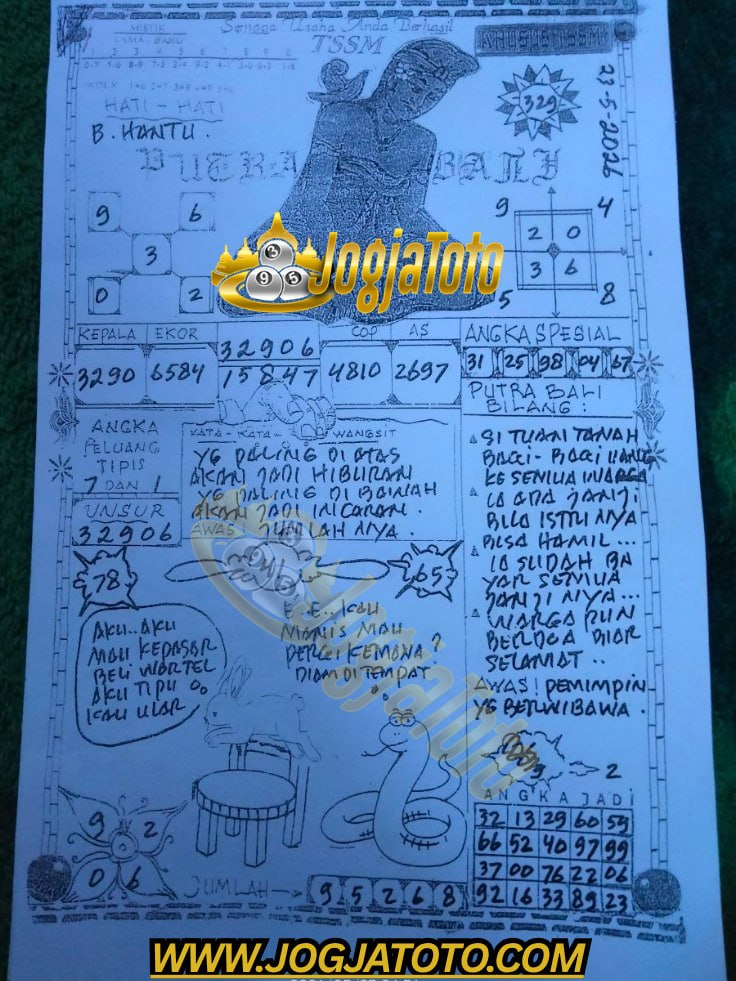 MISTIK
LAMA - BARU
Semoga Usaha Anda Berhasil
TSSM
KHUSUS TSSM
1 2 3 4 5 6 7 8 9 0
HATI - HATI
B. HANTU.
329
23-5-2026
PUTRA BALI
9 6
3
0 2
9 4
2 0
3 6
5 8
JogjaToto
KEPALA EKOR
3290 6584
32906
15847
COP AS
4810 2697
ANGKA SPESIAL
31 25 98 04 67
PUTRA BALI
BILANG :
SI TUAN TANAH
BAGI - BAGI UANG
KE SEMUA WARGA
IA ADA JANJI
BILA ISTRI NYA
BISA HAMIL ...
IA SUDAH BA
YAR SEMUA
JANJI NYA ...
WARGA PUN
BERDOA BIAR
SELAMAT ..
AWAS! PEMIMPIN
YG BERWIBAWA .
ANGKA
PELUANG
TIPIS
7 DAN 1
UNSUR
32906
KATA - KATA - WANGSIT
YG PALING DI ATAS
AKAN JADI HIBURAN
YG PALING DI BAWAH
AKAN JADI INCARAN .
AWAS JUMLAH NYA .
78
65
AKU.. AKU
MAU KEPASAR
BELI WORTEL
AKU TIPU
KAU ULAR
E.. E.. KAU
MANIS MAU
PERGI KEMANA ?
DIAM DI TEMPAT
JogjaToto
9 2
0 6
2
ANGKA JADI
32 13 29 60 59
66 52 40 97 99
37 00 76 22 06
92 16 33 89 23
JUMLAH → 9 5 2 6 8
WWW.JOGJATOTO.COM